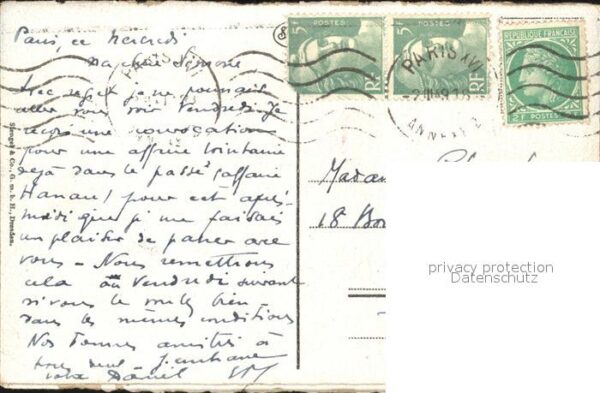 Paris, ce Mercredi
Ma chère Simone
Avec regret je ne pourrais
aller vous voir Vendredi. Je
reçois une convocation
pour une affaire lointaine
déjà dans le passé (affaire
Hanau) pour cet après-
midi que je me faisais
un plaisir de passer avec
vous - Nous remettrons
cela au Vendredi suivant
si vous le voulez bien -
dans les mêmes conditions
Nos bonnes amitiés à
tous deux
votre Daniel
5F
POSTES
RF
5F
POSTES
RF
REPUBLIQUE FRANÇAISE
2F POSTES
PARIS XVI
ANNEXE 2
PARIS
Stengel & Co., G. m. b. H., Dresden.
Madam
18 Bo
privacy protection
Datenschutz